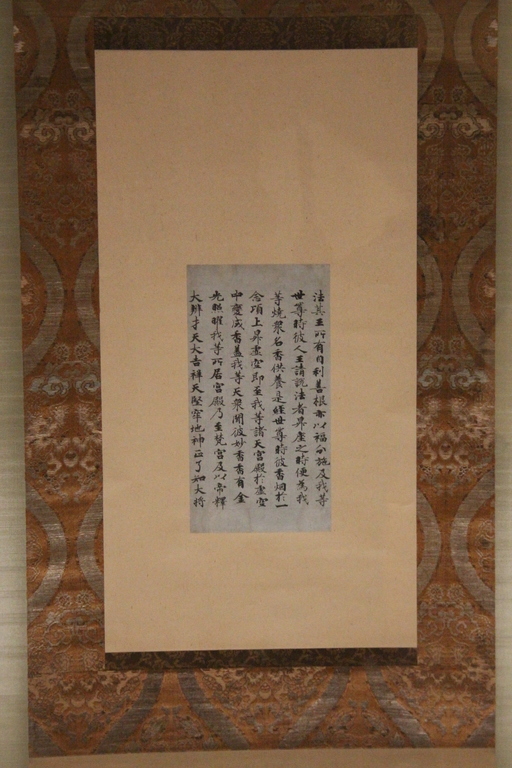 法其王所有自利善根亦以福分施及我等
世尊時彼人王請説法者昇座之時便為我
等燒衆名香供養是經世尊時彼香烟於一
念頃上昇虚空即至我等諸天宮殿於虚空
中變成香蓋我等天衆聞彼妙香香有金
光照曜我等所居宮殿乃至梵宮及以帝釋
大辯才天大吉祥天堅牢地神正了知大将